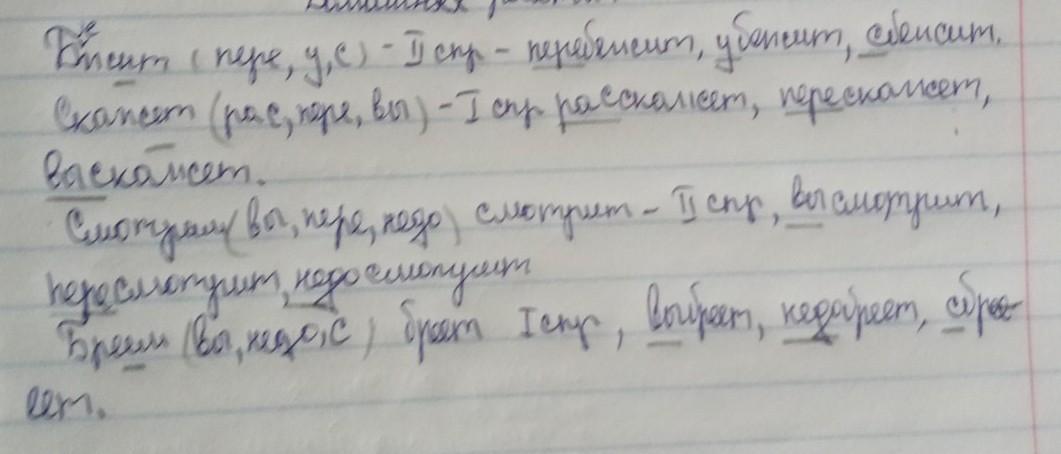 Домашняя работа
Бежит (пере, у, с) - II спр - перебежит, убежит, сбежит.
Скачет (рас, пере, вы) - I спр расскажет, перескажет,
выскажет.
Смотрим (вы, пере, недо) смотрит - II спр, высмотрит,
пересмотрит, недосмотрит
Бреем (вы, недо, с) бреет I спр, выбреет, недобреет, сбре
еет.